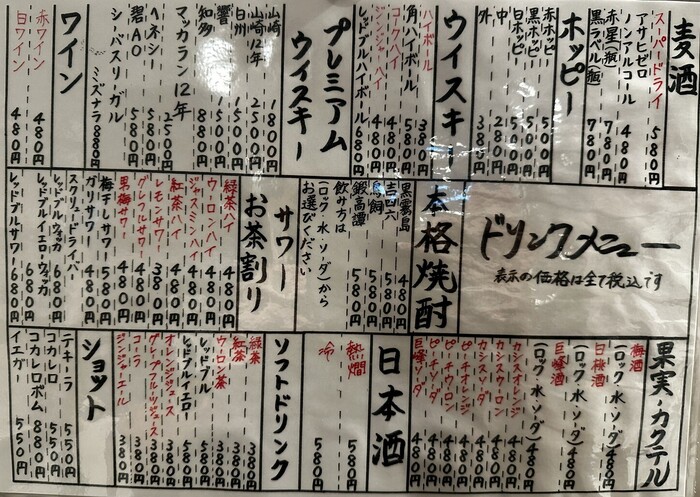 麦酒
スーパードライ 580円
アサヒゼロ
ノンアルコール 480円
赤星(瓶) 780円
黒ラベル(瓶) 780円
ホッピー
赤ホッピー 550円
黒ホッピー 550円
白ホッピー 500円
中 280円
外 380円
ウイスキー
ハイボール 380円
角ハイボール 580円
コークハイ 480円
ジンジャーハイ 480円
レッドブルハイボール 680円
プレミアム
ウイスキー
山崎 1800円
山崎12年 2500円
白州 1500円
響 1500円
知多 880円
マッカラン12年 2500円
ヘネシー 1580円
碧AO 580円
シーバスリーガル
ミズナラ 880円
ワイン
赤ワイン 480円
白ワイン 480円
ドリンクメニュー
表示の価格は全て税込です
本格焼酎
黒霧島 480円
吉四六 580円
鳥飼 580円
鍛高譚 580円
飲み方は
(ロック・水・ソーダ)から
お選びください
サワー
お茶割り
緑茶ハイ 480円
ウーロンハイ 480円
ジャスミンハイ 480円
紅茶ハイ 480円
レモンサワー 380円
グレフルサワー 480円
男梅サワー 480円
梅干しサワー 580円
ガリサワー 480円
スクリュードライバー 580円
レッドブルウォッカ 680円
レッドブルイエローウォッカ 680円
レッドブルサワー 680円
果実・カクテル
梅酒
(ロック・水・ソーダ) 480円
白桃酒
(ロック・水・ソーダ) 480円
巨峰酒
(ロック・水・ソーダ) 480円
カシスオレンジ 480円
カシスウーロン 480円
カシスソーダ 480円
ピーチオレンジ 480円
ピーチウーロン 480円
ピーチソーダ 480円
巨峰ソーダ 480円
日本酒
熱燗 580円
冷 580円
ソフトドリンク
緑茶 380円
紅茶 380円
ウーロン茶 380円
レッドブル 580円
レッドブルイエロー 580円
オレンジジュース 380円
グレープフルーツジュース 380円
コーラ 380円
ジンジャーエール 380円
ショット
テキーラ 550円
コカレロ 550円
コカレロボム 880円
イエガー 550円